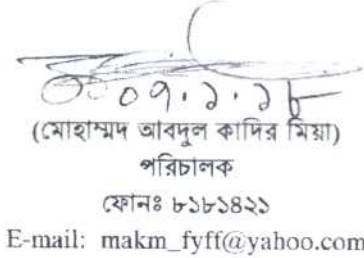 ০৭.১.১৮
(মোহাম্মদ আবদুল কাদির মিয়া)
পরিচালক
ফোনঃ ৮১৮১৪২১
E-mail: makm_fyff@yahoo.com